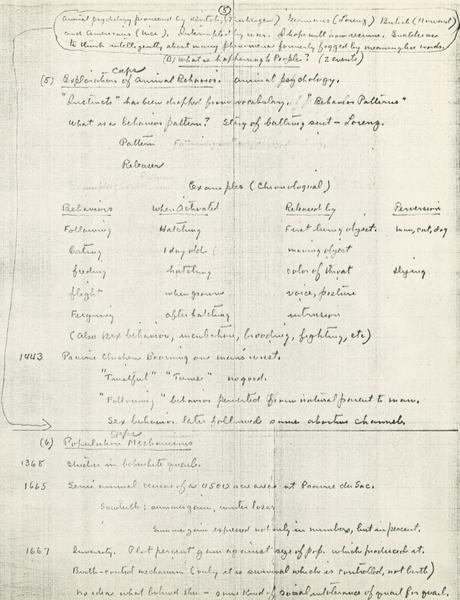 (5)
Animal psychology pioneered by Dutch, (Tinbergen) Germans (Lorenz) British (Howard)
and Americans (Nice). Interrupted by war. I hope will now resume. Enables us
to think intelligently about many phenomena formerly fogged by meaningless words.
(D) What is happening to People? (2 events)
Cape
(5) Exploration of Animal Behavior. Animal psychology.
"Instincts" has been dropped from vocabulary. "Behavior Patterns"
What is a behavior pattern? Story of bathing suit - Lorenz.
Pattern
Releaser
Examples (Chronological)
Behaviors When Activated Released by Perversion
Following Hatching First living object. man, cat, dog
Eating 1 day old moving object
feeding hatching color of throat
flight when grown voice, posture
Feigning after hatching intrusion
(Also sex behavior, incubation, brooding, fighting, etc)
1443 Prairie Chicken Booming on man's wrist.
"Trustful" "Tame" no good.
"Following" behavior perverted from natural parent to man.
Sex behavior later followed same abortive channels.
(6) Population Mechanisms
1368 Studies in bobwhite quail.
1665 Semi annual census of a 4500 acre area at Prairie du Sac.
Sawtooth; summer gain, winter loss
Summer gain expressed not only in numbers, but in percent.
1667 Inversity. Plot percent gain against size of pop. which produced it.
Birth-control mechanism (only it is survival which is controlled, not birth)
No idea what behind this - some kind of social intolerance of quail for quail.